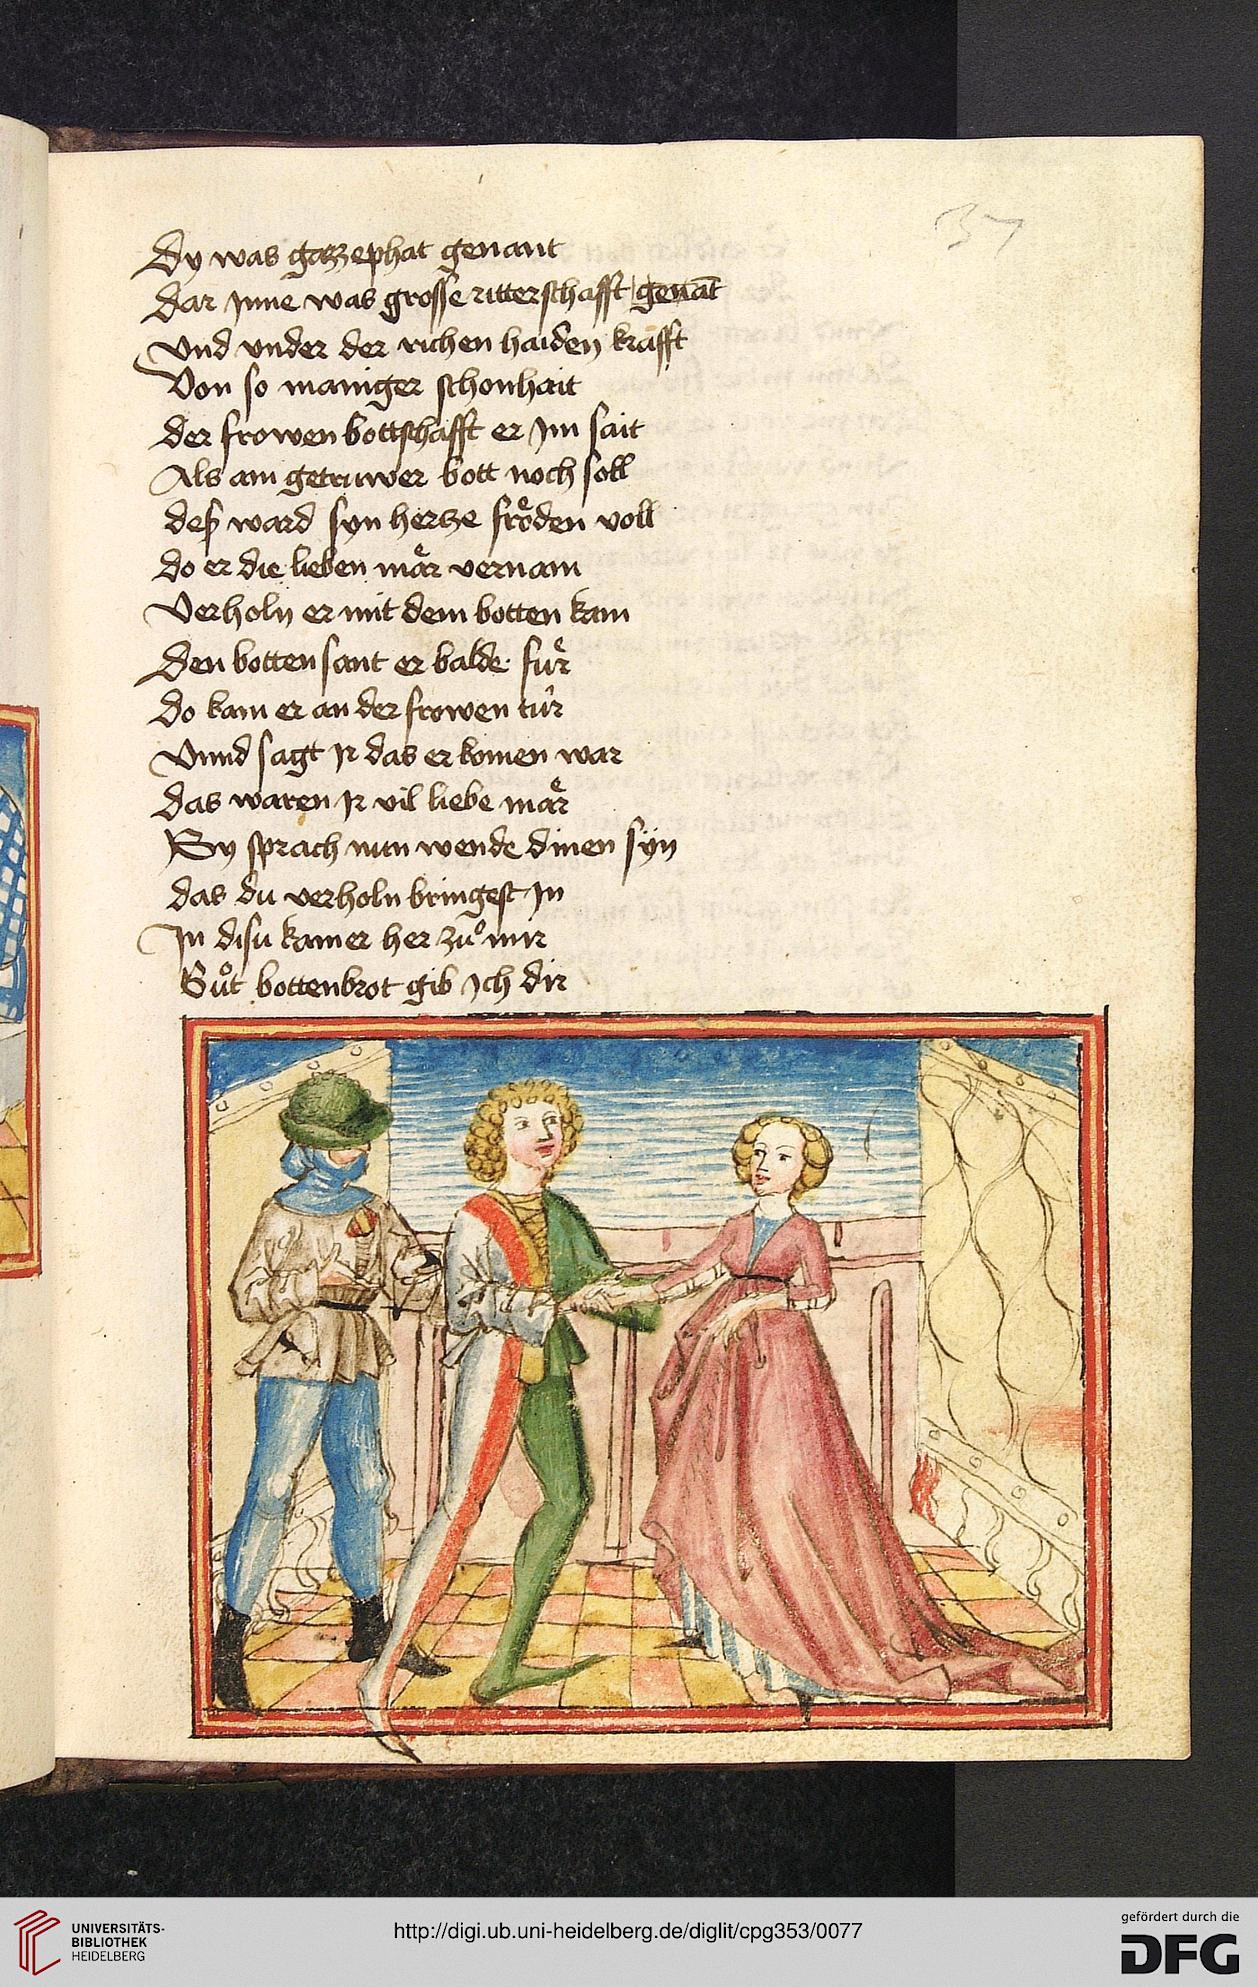 37
Dy was gazzephat genant
Dar Inne was grosse ritterschafft genāt
Vnd vnder der richen haiden krafft
Von so maniger schonhait
der frowen bottschafft er Im sait
Als ain getruwer bott noch soll
deß ward syn hertze frǒden voll
do er die lieben mär vernam
Verholn er mit dem botten kam
Den botten sant er balde fuͤr
Do kam er an der frowen tuͤr
Vnnd sagt Ir das er komen war
das waren Ir vil liebe maͤr
Sy sprach nun wende dinen syn
das du verholn bringest In
In disu kamer her zuͦ mir
Guͦt bottenbrot gib Ich dir
UNIVERSITÄTS-
BIBLIOTHEK
HEIDELBERG
http://digi.ub.uni-heidelberg.de/diglit/cpg353/0077
gefördert durch die
DFG